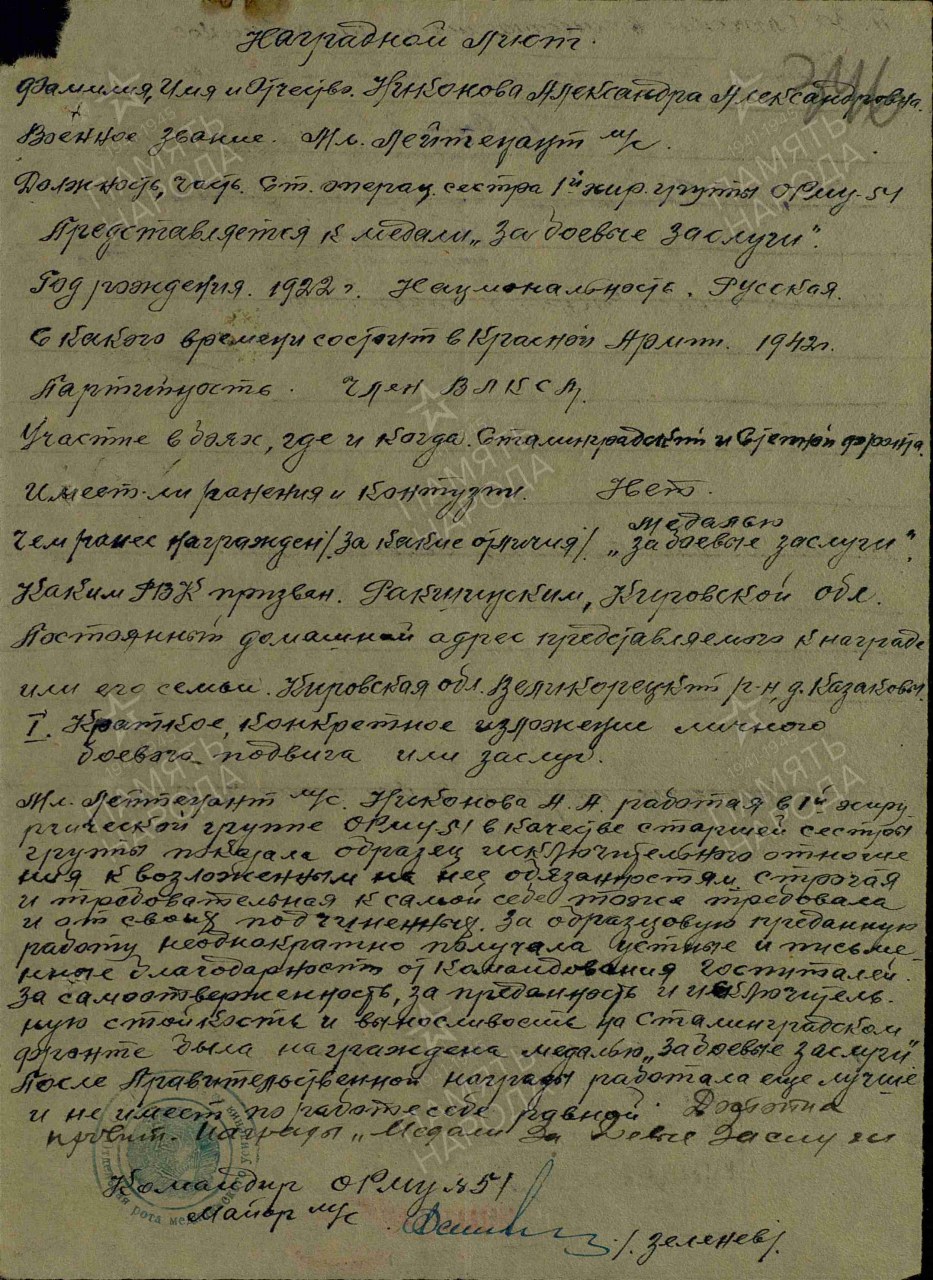 Наградной Лист.
Фамилия, Имя и Отчество. Никонова Александра Александровна.
Военное звание. Мл. Лейтенант м/с.
Должность, часть. Ст. операц. сестра 1й хир. группы ОРМУ-51
Представляется к медали „За боевые заслуги".
Год рождения. 1922 г. Национальность. Русская.
С какого времени состоит в Красной Армии. 1942 г.
Партийность. Член ВЛКСМ.
Участие в боях, где и когда. Сталинградский и Степной фронта.
Имеет-ли ранения и контузии. Нет.
Чем ранее награжден /за какие отличия/. медалью „За боевые заслуги".
Каким РВК призван. Кировской обл.
Постоянный домашний адрес представляемого к награде
или его семьи. Кировская обл. Великорецкий р-н, д. Казаковы.
I. Краткое, конкретное изложение личного
боевого подвига или заслуг.
Мл. Лейтенант м/с. Никонова А. А. работая в 1й хиру
ргической группе ОРМУ 51 в качестве старшей сестры
группы показала образец исключительного отноше
ния к возложенным на нее обязанностям, строгая
и требовательная к самой себе тоже требовала
и от своих подчиненных. За образцовую преданную
работу неоднократно получала устные и письме
нные благодарности от командования госпиталей.
За самоотверженность, за преданность и исключитель-
ную стойкость и выносливость на Сталинградском
фронте была награждена медалью „За боевые заслуги"
После Правительственной награды работала еще лучше
и не имеет по работе себе равной. Достойна
правит. награды „Медали За Боевые Заслуги
Командир ОРМУ №51
Майор м/с /Зеленев/.
ПАМЯТЬ НАРОДА
1941-1945